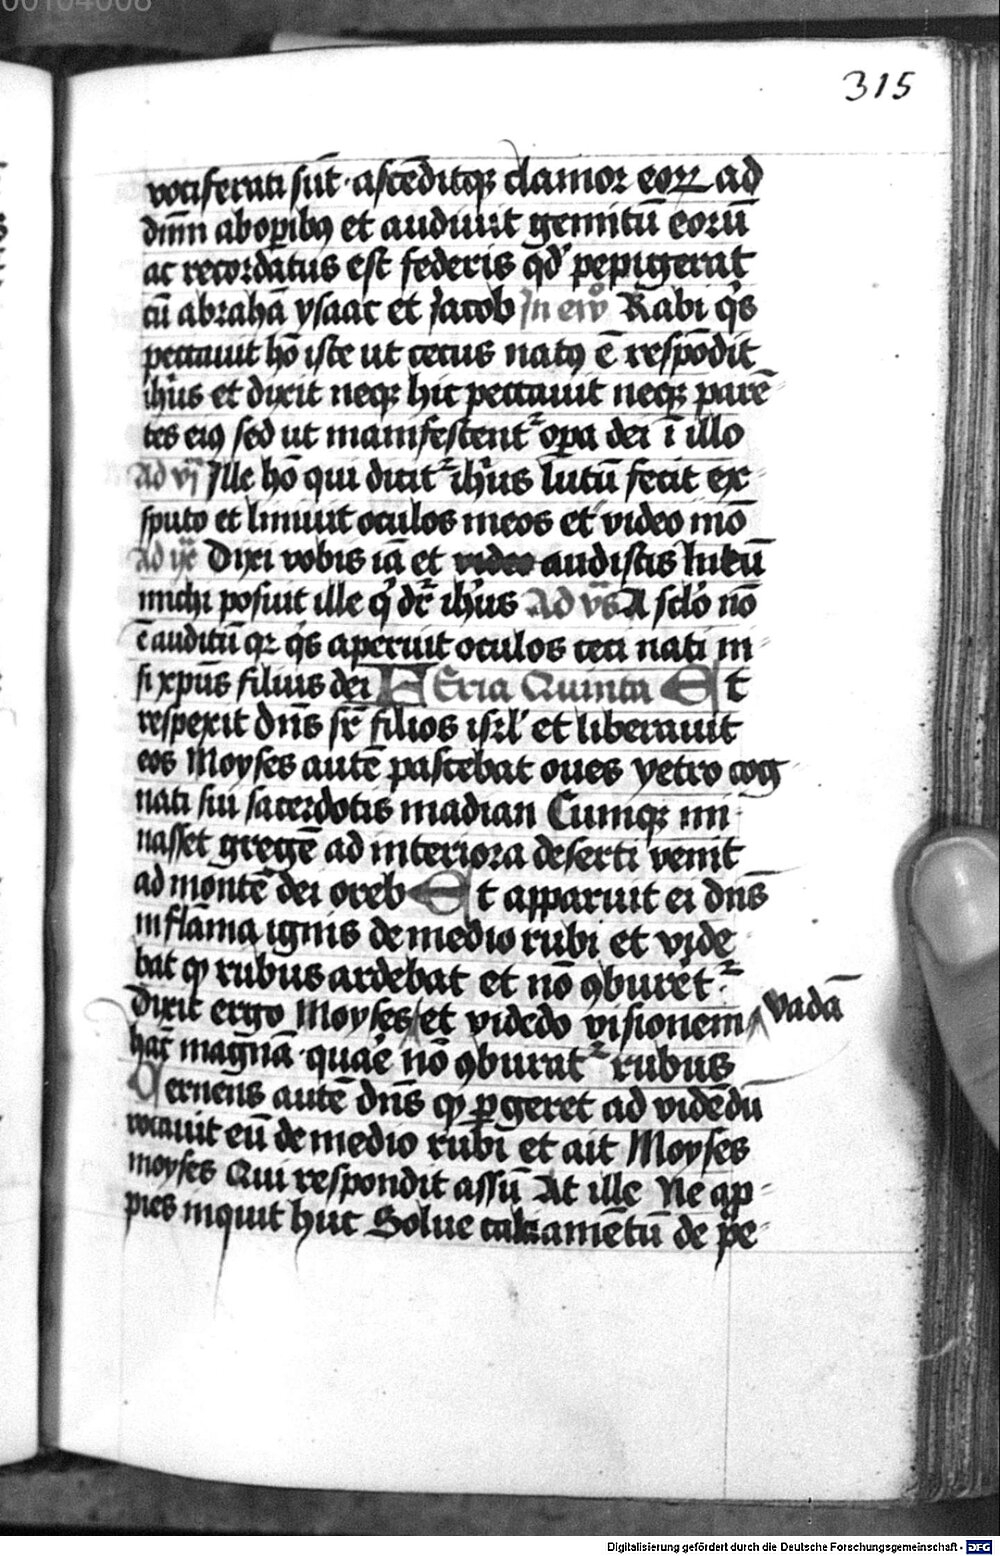 00104008
315
vociferati sūt · ascēditqꝫ clamor eoꝝ ad
dn̄m ab oꝑibꝯ et audiuit gemitū eorū
ac recordatus est federis qd̓ pepigerat
cū abrahā ysaac et Jacob In ew̄ Rabi qͥs
peccauit hō iste ut cecus natꝯ ē respōdit
ih̓us et dixit neqꝫ hic peccauit neqꝫ parē⸗
tes eiꝯ sed ut manifestent᷑ oꝑa dei ī illo
Ad vj Ille hō qui dicit᷑ ih̓us lutū fecit ex⸗
sputo et liniuit oculos meos et video mō
Ad Dixi vobis iā et video audistis lutū
michi posuit ille qͥ dr̄ ih̓us Ad A sclō nō
ē auditū qꝛ qͥs aperuit oculos ceci nati ni⸗
si xp̄us filius dei FEria Quinta Et
respexit dn̄s sr̄ filios isrl̓ et liberauit
eos Moyses autē pascebat oues yetro cog
nati sui sacerdotis madian Cumqꝫ mi⸗
nasset gregē ad interiora deserti venit
ad montē dei oreb Et apparuit ei dn̄s
in flāma ignis de medio rubi et vide⸗
bat ꝙ rubus ardebat et nō ꝯburet᷑
Dixit ergo Moyses et videbo visionem vadā
hāc magnā · quare nō ꝯburat᷑ rubus
Cernens autē dn̄s ꝙ ꝑgeret ad vidēdū
vocauit eū de medio rubi et ait Moyses
moyses Qui respondit assū At ille Ne ap⸗
pies inquit huc Solue calciamētū de pe⸗
Digitalisierung gefördert durch die Deutsche Forschungsgemeinschaft - DFG